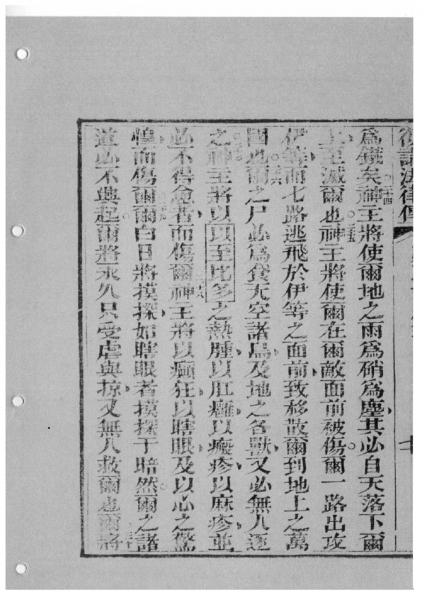 復講法律傳
為鐵矣神主將使爾地之雨為硝為塵其必自天落下爾
上至滅爾也神主將使爾在爾敵面前被傷爾一路出攻
伊等而七路逃飛於伊等之面前致移散爾到地上之萬
國也爾之尸必為食天空諸鳥及地之各獸又必無人逐
之神主將以以至比多之熱腫以肛癰以癡疹以麻疹並
必不得愈者而傷爾神主將以癲狂以瞎眼及以心之驚
惶而傷爾爾白日將摸探如瞎眼者摸探于暗然爾之諸
道必不興起爾將永久只受虐與掠又無人救爾也爾將